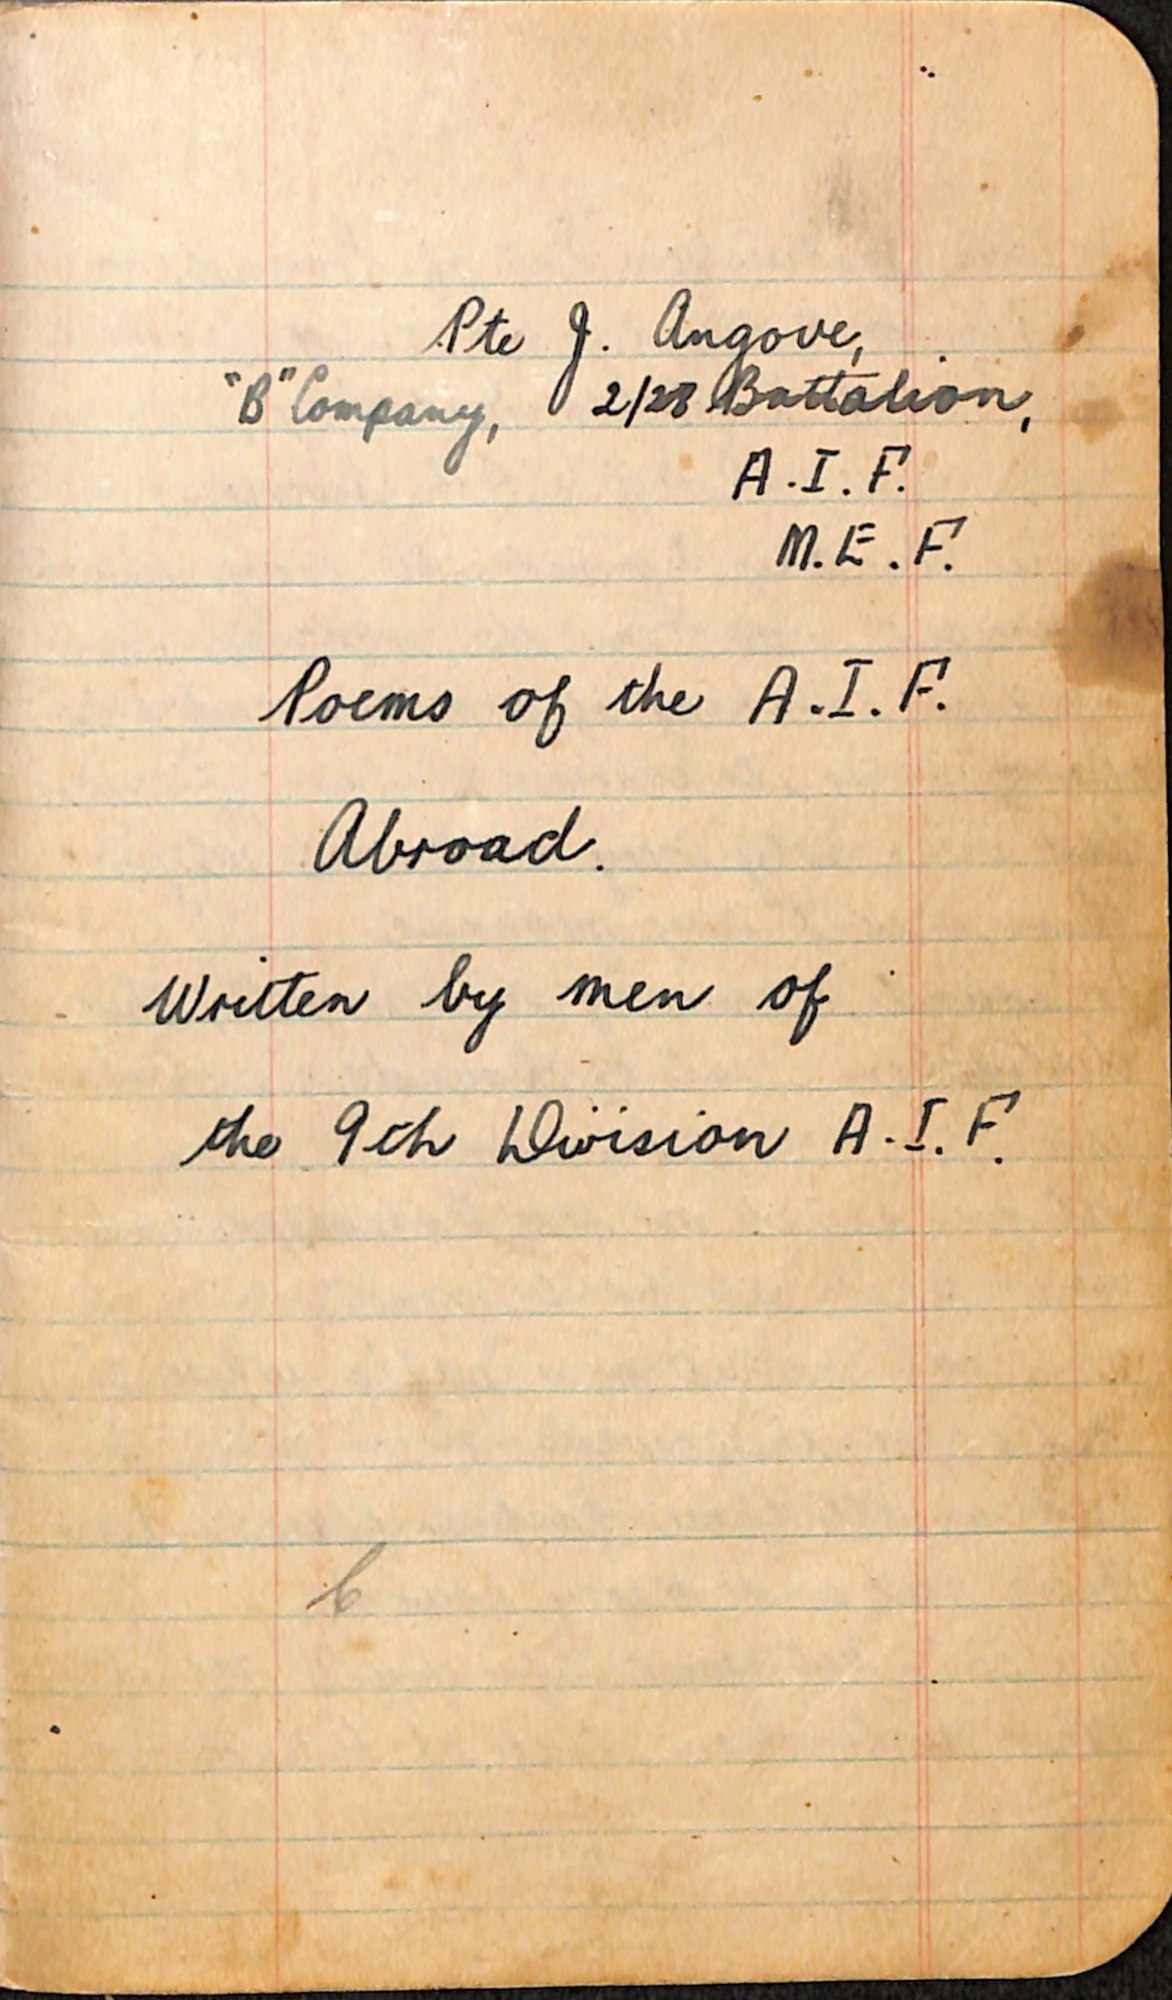 Pte J. Angove,
"B" Company, 2/28 Battalion,
A.I.F.
M.E.F.
Poems of the A.I.F.
Abroad.
Written by men of
the 9th Division A.I.F.